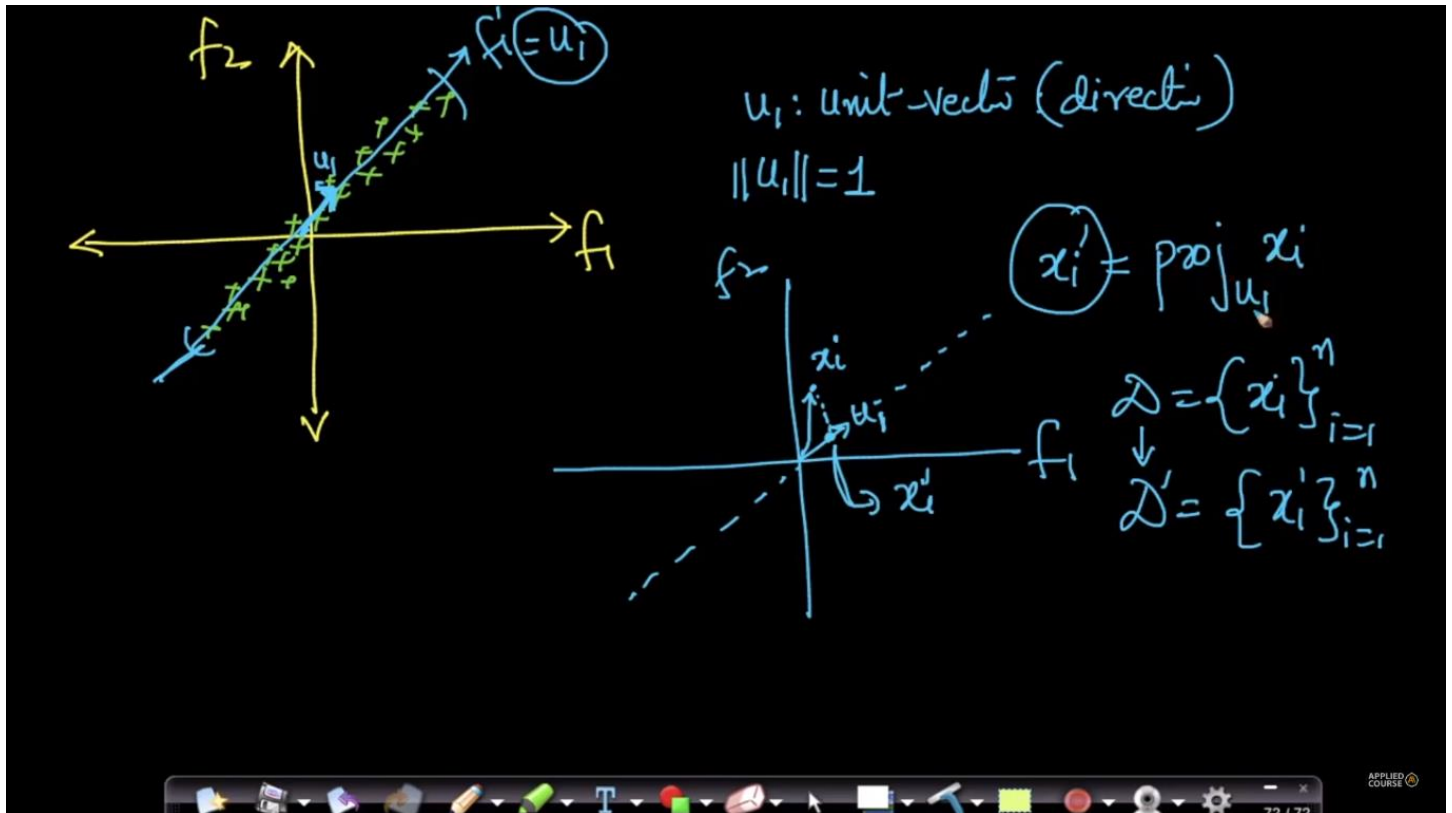 f₂
f₁' = u₁
u₁
f₁
u₁: unit-vecto (directi)
||u₁|| = 1
xᵢ' = proj_u₁ xᵢ
f₂
xᵢ
u₁
f₁
xᵢ'
D = {xᵢ}ⁿᵢ₌₁
↓
D' = {xᵢ'}ⁿᵢ₌₁
T
APPLIED
COURSE
72 / 72